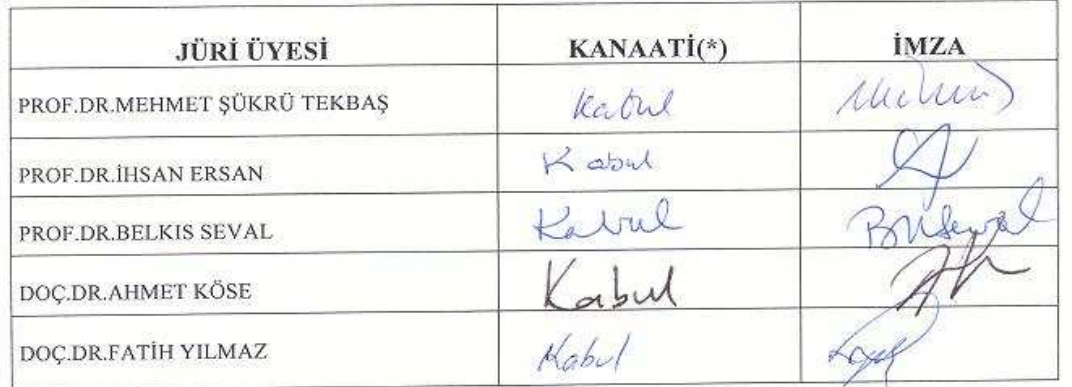 JÜRİ ÜYESİ KANAATİ(*) İMZA
PROF.DR.MEHMET ŞÜKRÜ TEKBAŞ Kabul
PROF.DR.İHSAN ERSAN Kabul
PROF.DR.BELKIS SEVAL Kabul
DOÇ.DR.AHMET KÖSE Kabul
DOÇ.DR.FATİH YILMAZ Kabul